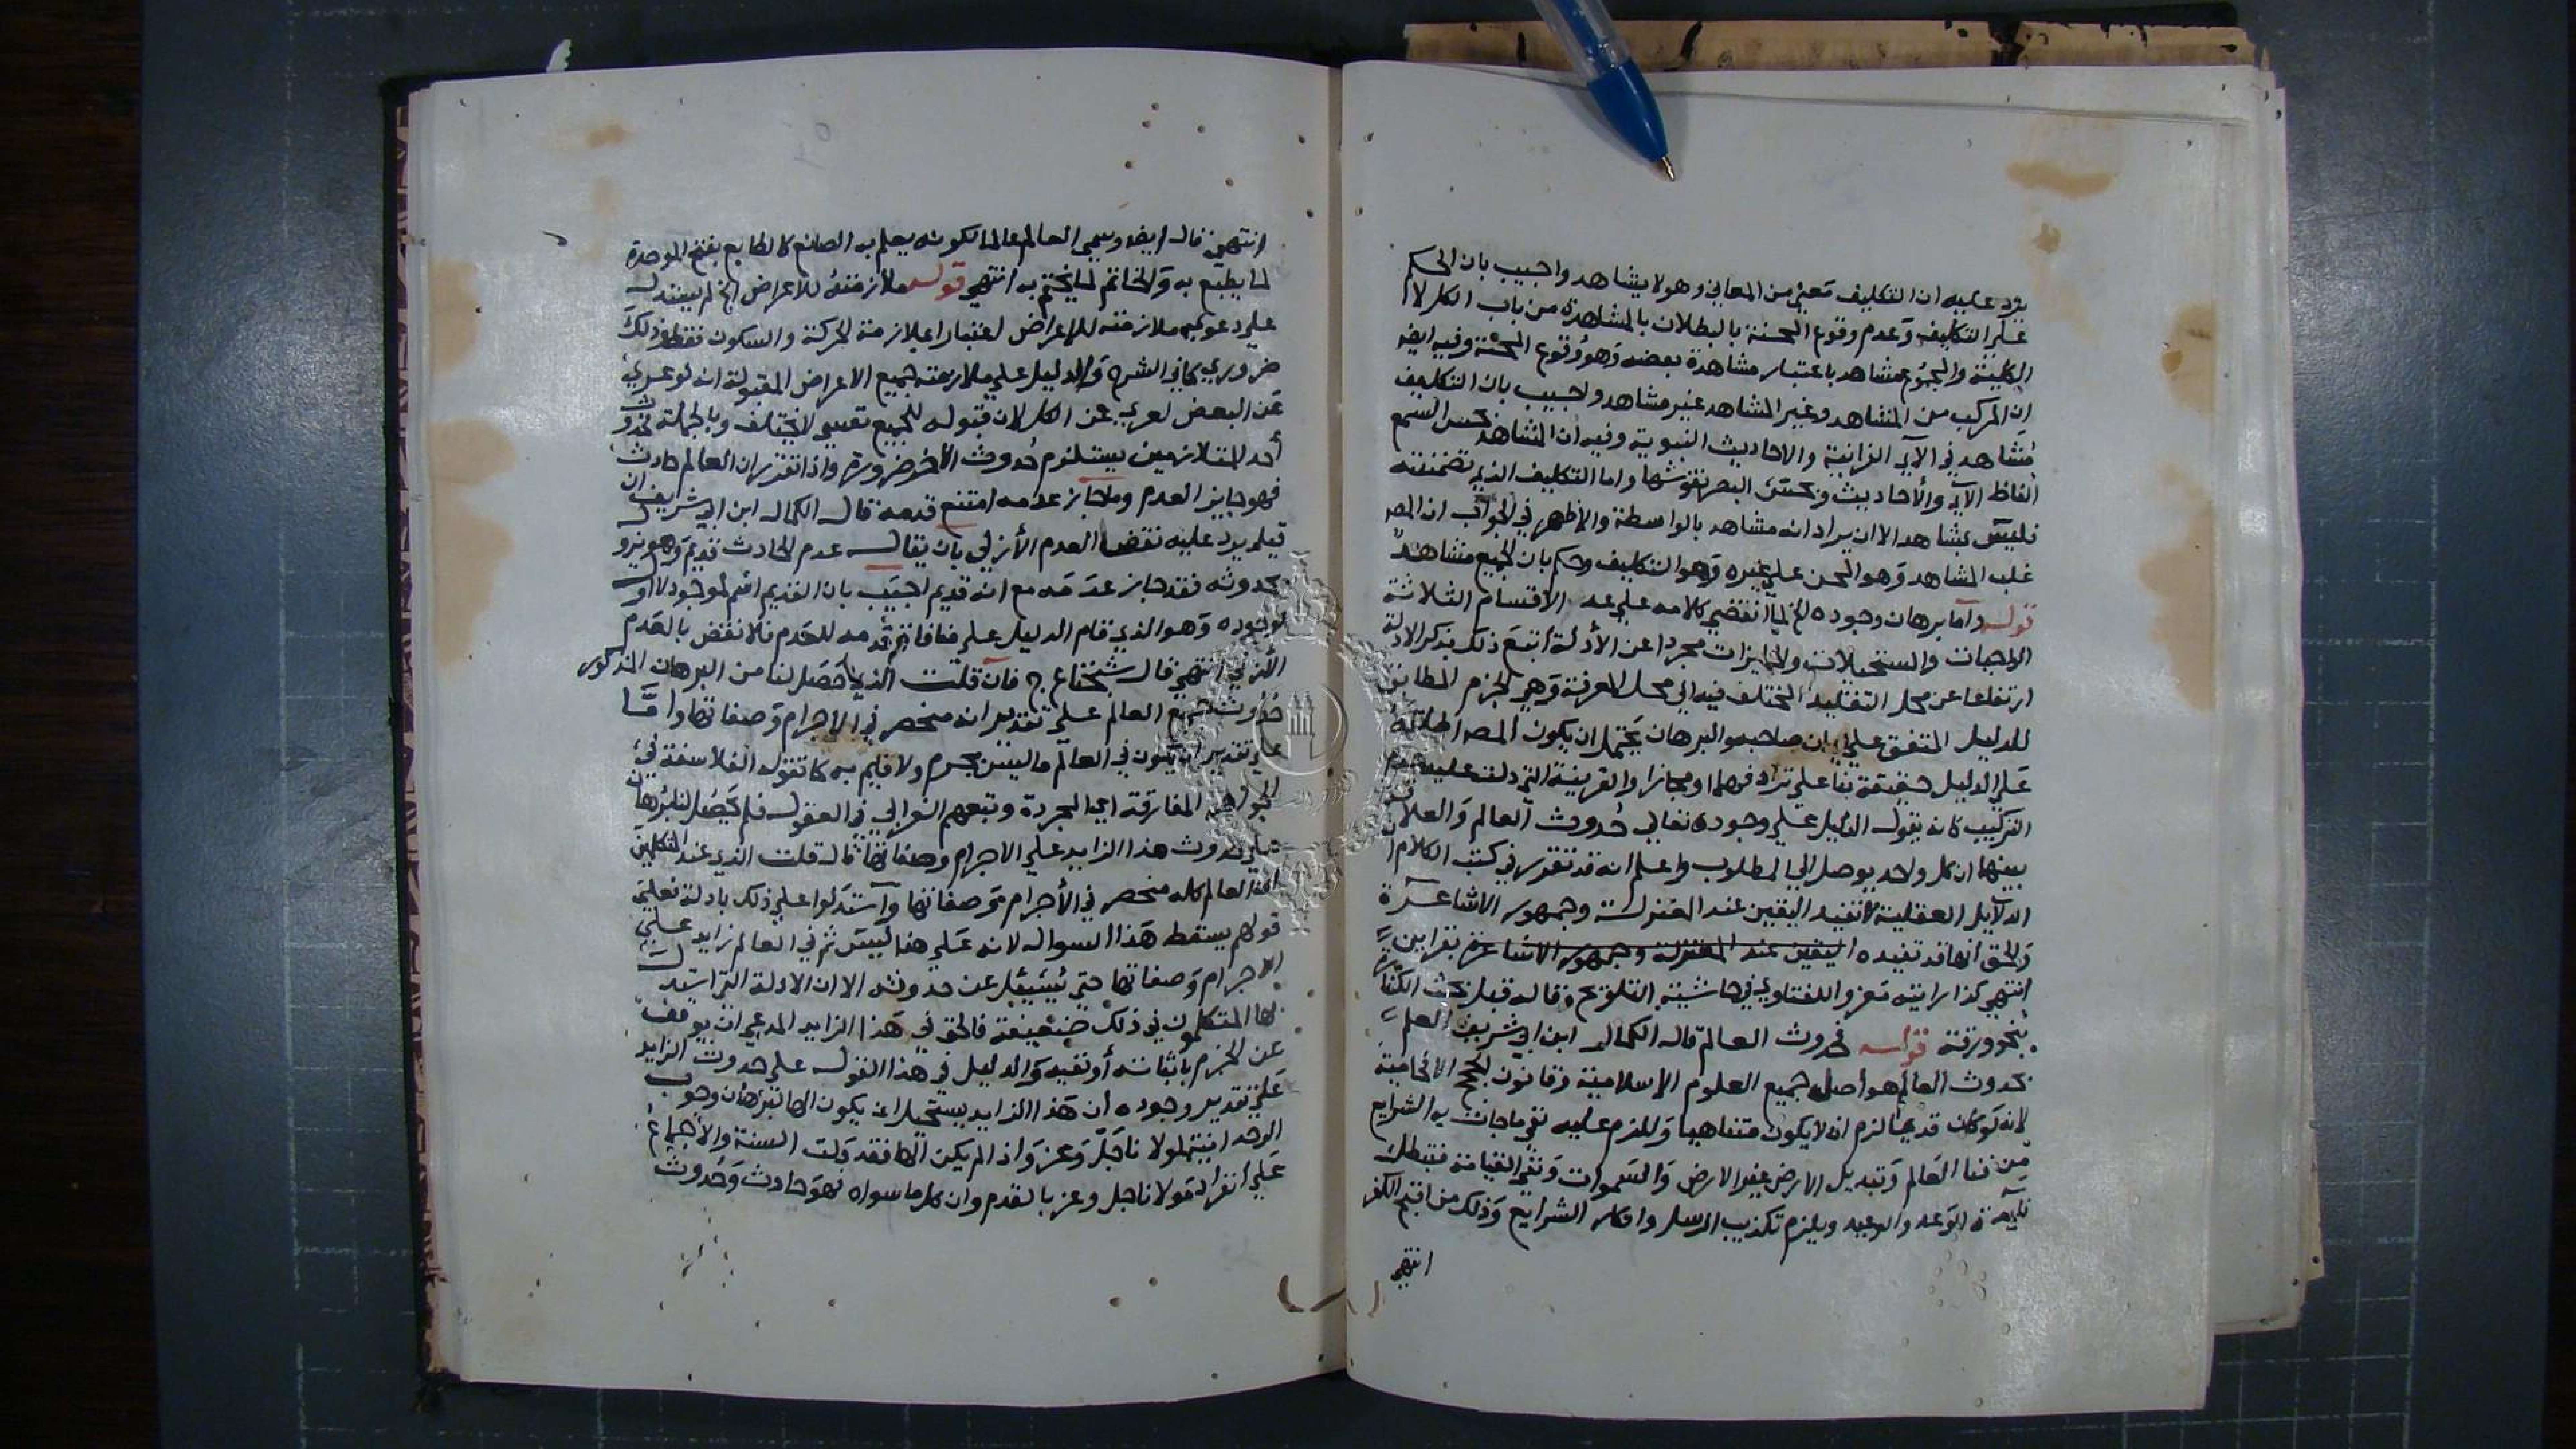 يرد عليه ان التكليف معني من المعاني وهو لا يشاهد واجيب بان الحكم
علي التكليف وعدم وقوع المحنة بالبطلان بالمشاهدة من باب الكل لا
الكلية والمجموع مشاهد باعتبار مشاهدة بعضه وهو وقوع المحنة وفيه ايضا
ان المركب من المشاهد وغير المشاهد غير مشاهد واجيب بان التكليف
مشاهد في الآي القرانية والاحاديث النبوية وفيه ان المشاهد بحس السمع
الفاظ الآي والأحاديث وبحس البصر نقوشها واما التكليف الذي تضمنته
فليس بشاهد الا ان يراد انه مشاهد بالواسطة والاظهر في الجواب ان المص
غلب المشاهد وهو المحن علي غيره وهو التكليف وحكم بان الجميع مشاهد
قوله واما برهان وجوده الخ لما انقضي كلامه علي عد الاقسام الثلاثة
الواجبات والمستحيلات والجايزات مجردا عن الأدلة أتبع ذلك بذكر الادلة
ارتفاعا عن محل التقليد المختلف فيه الي محل المعرفة وهي الجزم المطابق
للدليل المتفق علي ايمان صاحبها والبرهان يحتمل ان يكون المصه اطلقه
علي الدليل حقيقة بناء علي ترادفهما او مجازا والقرينة التي دلت عليه
التركيب كانه يقول الدليل علي وجوده تعالي حُدوث العالم والعلاقة
بينها ان كل واحد يوصل الي المطلوب واعلم انه قد تقدر في كتب الكلام ان
الدلايل العقلية لا تفيد اليقين عند المعتزلة وجمهور الاشاعرة
والحق انها قد تفيده اليقين عند المعتزلة وجمهور الاشاعرة بقراين
انتهي كذا رايته معزوا للفناوي في حاشيته التلويح وقاله قبل بحث الكناية
بنحو ورقة قوله فحدوث العالم قال الكمال ابن ابي شريف العلم
بحدوث العالم هو أصل جميع العلوم الاسلامية وقانون الحجج الافحامية
لانه لو كان قديما لزم ان لا يكون متناهيا وللزم عليه نفي ما جات به الشرايع
من فنا العالم وتبديل الارض غير الارض والسموات ونفي القيامة فتبطل
فايدة الوعد والوعيد ويلزم تكذيب الرسل وانكار الشرايع وذلك من اقبح الكفر
انتهي
انتهي قال ايضا وسمي العالم عالما لكونه يعلم به الصانع كالطابع بفتح الموحدة
لما يطبع به والخاتم لما يختم به انتهي قوله ملازمته للاعراض الخ لم يستدل
علي دعوي ملازمته للاعراض اعتبارا بملازمة الحركة والسكون فقط وذلك
ضروري كما في الشرح والدليل علي ملازمته جميع الاعراض المقبولة انه لو عري
عن البعض لعري عن الكل لان قبوله للجميع نفسي لا يختلف وبالجملة فحدوث
أحد المتلازمين يستلزم حُدوث الآخر ضرورة واذا تقرر ان العالم حادث
فهو جايز العدم وما جاز عدمه امتنع قدمه قال الكمال ابن ابي شريف ان
قيل يرد عليه نقضا العدم الأزلي بان يقال عدم الحادث قديم وهو يزول
بحدوثه فقد جاز عدمه مع انه قديم اجيب بان القديم اسم لموجود لا اول
لوجوده وهو الذي قام الدليل علي منافاة قدمه للعدم فلا نقض بالعدم
الأزلي انتهي قال شيخنا ع ج فان قلت الذي حصل لنا من البرهان المذكور
حُدوث جميع العالم علي تقدير انه منحصر في الاجرام وصفاتها واما
علي تقدير ان يكون في العالم ما ليس بجرم ولا قايم به كما تقوله الفلاسفة في
الجواهر المفارقة اي المجردة وتبعهم الغزالي في العقول فلم يحصل لنا برهان
علي حدوث هذا الزايد علي الاجرام وصفاتها قال قلت الذي عند المتكلمين
ان العالم كله منحصر في الأجرام وصفاتها واستدلوا علي ذلك بادلة فعلي
قولهم يسقط هذا السوال لانه علي هنا ليس ثم في العالم زايد علي
الاجرام وصفاتها حتي يُسئل عن حدوثه الا ان الادلة التي استدل
بها المتكلمون في ذلك ضعيفة فالحق في هذا الزايد المدعي ان يوقف
عن الجزم باثباته أو نفيه والدليل في هذا القول علي حدوث الزايد
علي تقدير وجوده أن هذا الزايد يستحيل ان يكون الها لبرهان وجوب
الوحدانية لمولانا جلّ وعز واذا لم يكن الها فقد دلت السنة والاجماع
علي انفراد مولانا جل وعز بالقدم وان كل ما سواه فهو حادث وحُدوث